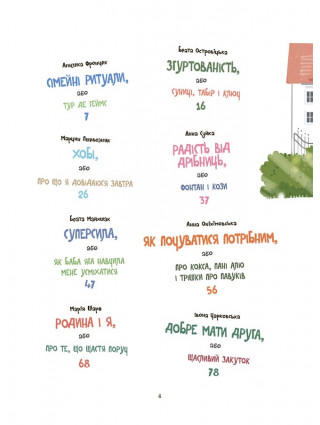 Анцелка Францик
СІМЕЙНІ РИТУАЛИ,
АБО
ТУР ДЕ ГЕЙМС
7
Беата Островіцька
ЗГУРТОВАНІСТЬ,
АБО
СУНИЦІ, ТАБІР І АЛЮЦІ
16
Марцин
ХОБІ,
АБО
ПРО ЩО Я ДОВІДАЮСЯ ЗАВТРА
26
Анна Суйка
РАДІСТЬ ВІД
ДРІБНИЦЬ,
АБО
ФОНТАН І КОЗИ
37
Беата
СУПЕРСИЛА,
АБО
ЯК БАБА ЯГА НАВЧИЛА
МЕНЕ УСМІХАТИСЯ
47
Анна
ЯК ПОЧУВАТИСЯ ПОТРІБНИМ,
АБО
ПРО КОКСА, ПАНІ АЛЮ
І ТРЯПКИ ПРО ПАВУКІВ
56
Марія
РОДИНА І Я,
АБО
ПРО ТЕ, ЩО ЩАСТЯ ПОРУЧ
68
Івона Чарковська
ДОБРЕ МАТИ ДРУГА,
АБО
ЩАСЛИВИЙ ЗАКУТОК
78
4